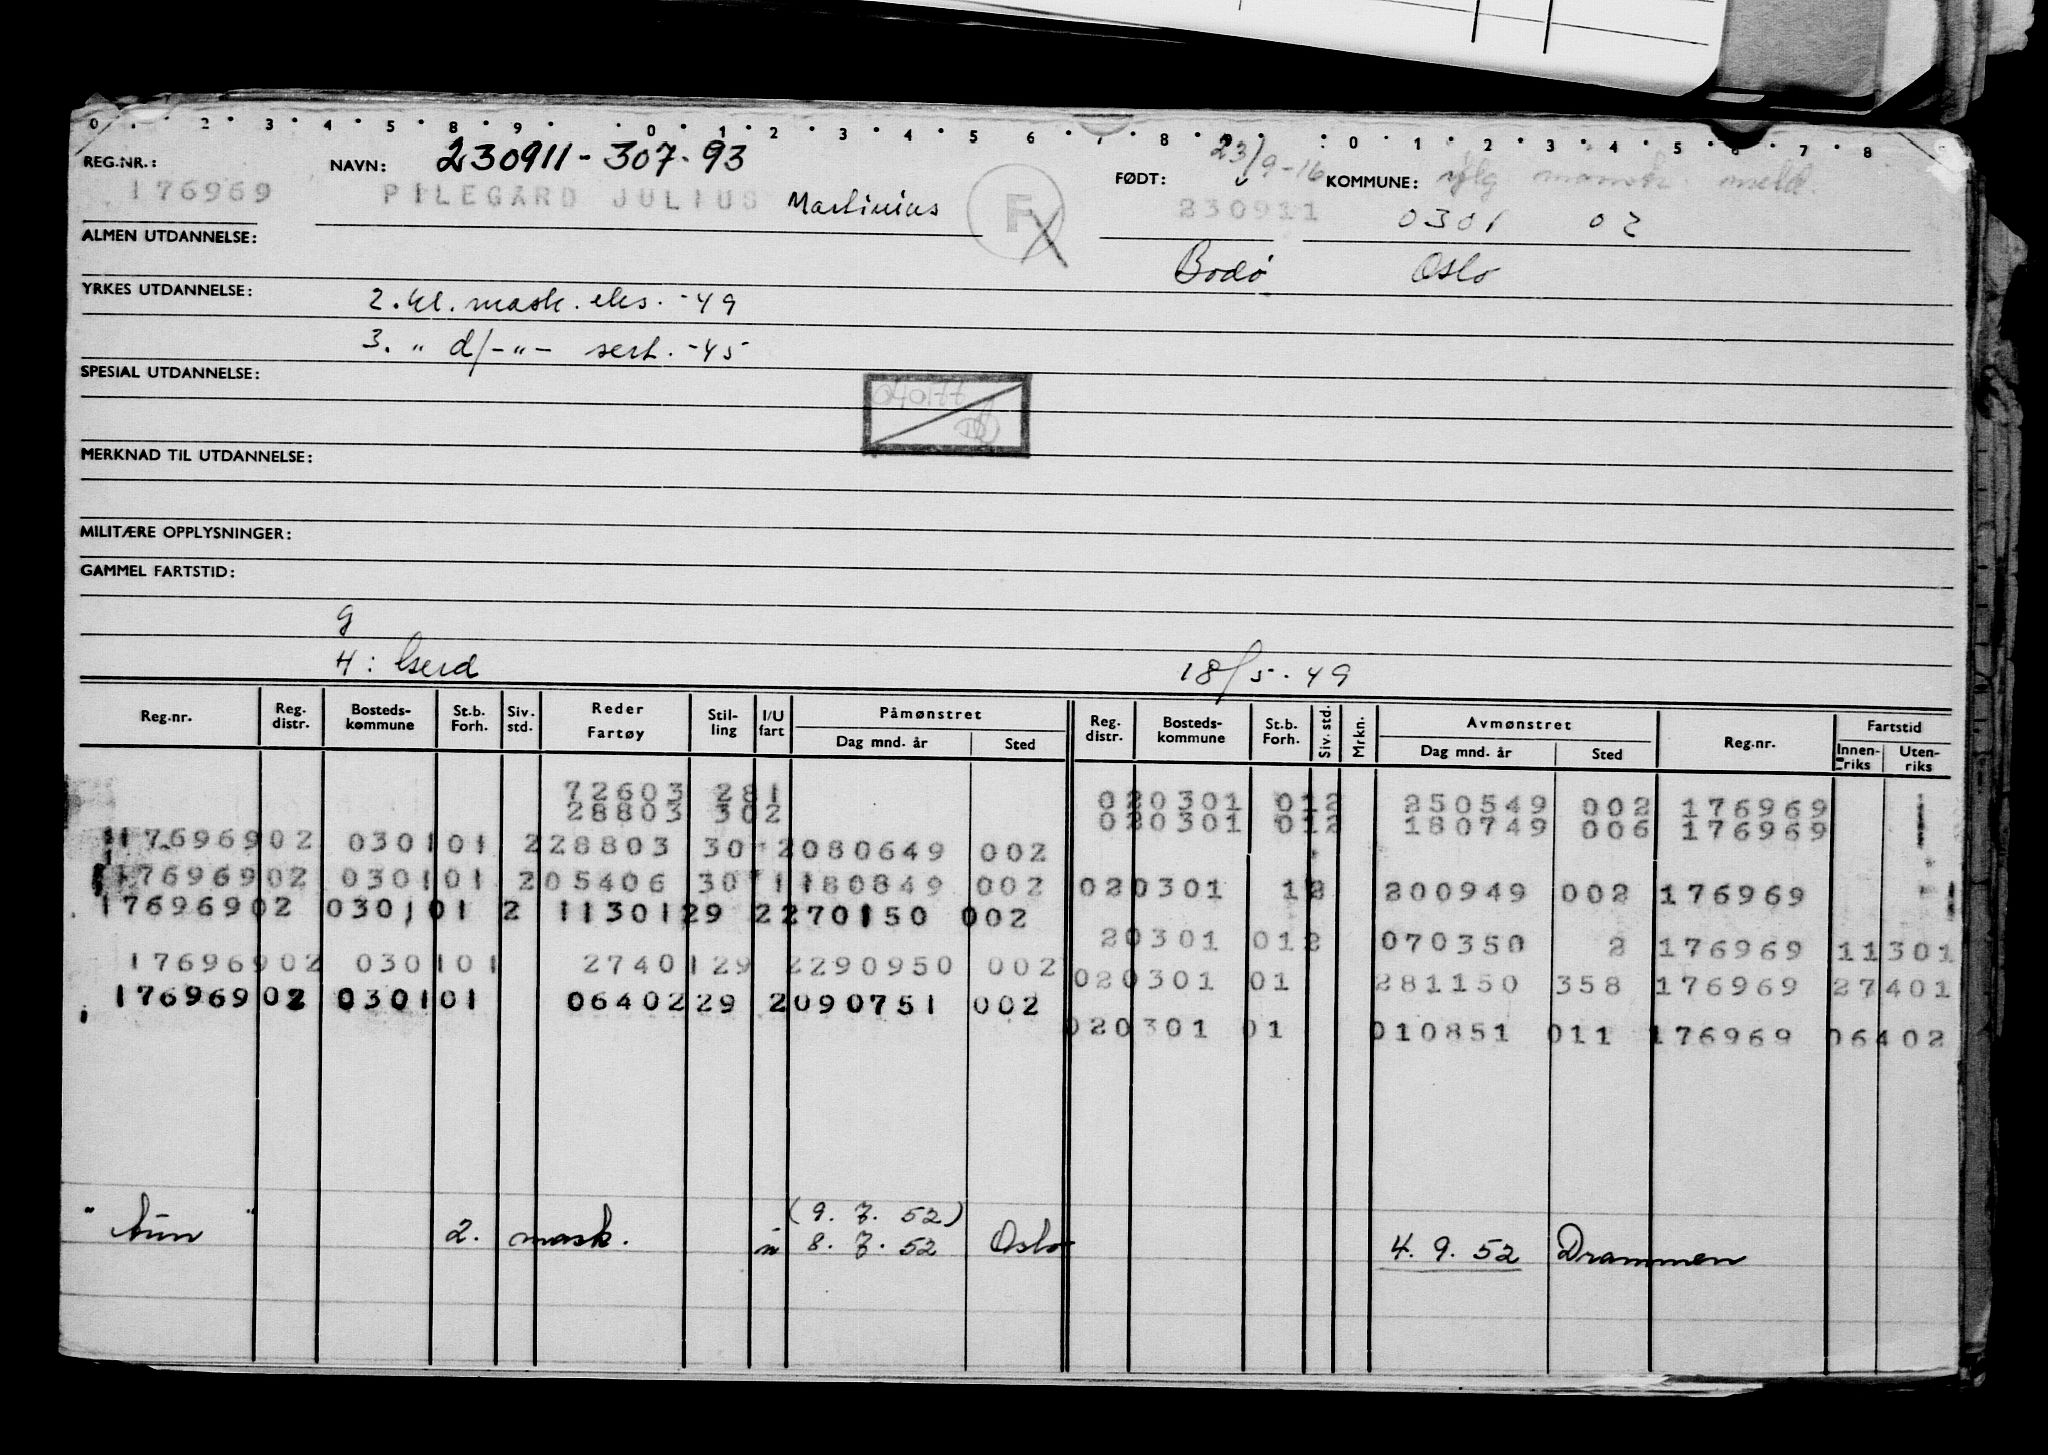 0 · · 2 · 3 · 4 · 5 · 8 · 9 · · 0 · 1 · 2 · 3 · 4 · 5 · 6 · 7 · 8 · 9 · · 0 · 1 · 2 · 3 · 4 · 5 · 6 · 7 · 8
REG.NR.: NAVN: 230911-307-93 FØDT: 23/9-16 KOMMUNE: mønstr. meld.
176969 PILEGARD JULIUS Martinius F 230911 0301 02
ALMEN UTDANNELSE: Bodø Oslo
YRKES UTDANNELSE: 2. kl. mask. eks. -49
3. " d/-"- sert. -45
SPESIAL UTDANNELSE: 040177
MERKNAD TIL UTDANNELSE:
MILITÆRE OPPLYSNINGER:
GAMMEL FARTSTID:
g
4: Gerd 18/5.49
Reg.nr. Reg. distr. Bosteds-kommune St.b. Forh. Siv. std. Reder Fartøy Stil-ling I/U fart Påmønstret Dag mnd. år Sted Reg. distr. Bosteds-kommune St.b. Forh. Siv. std. Mrkn. Avmønstret Dag mnd. år Sted Reg.nr. Fartstid Innen-riks Uten-riks
72603 281 020301 012 250549 002 176969
28803 302 020301 012 180749 006 176969
17696902 030101 228803 30 2080649 002
17696902 030101 205406 30 1180849 002 020301 12 200949 002 176969
17696902 030101 2 1130129 2270150 002
20301 012 070350 2 176969 11301
17696902 030101 2740129 2290950 002
020301 01 281150 358 176969 27401
17696902 030101 0640229 2090751 002
020301 01 010851 011 176969 06402
(9. 7. 52)
" Aun " 2. mask. u 8. 7. 52 Oslo 4. 9. 52 Drammen